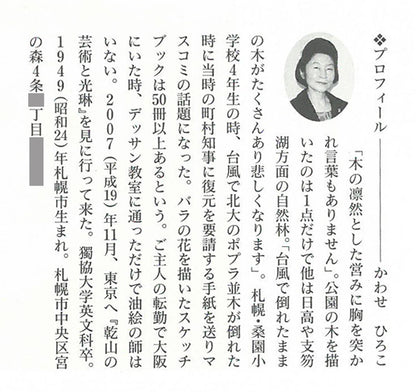 ❖プロフィール――――かわせ ひろこ
「木の凛然とした営みに胸を突か
れ言葉もありません」。公園の木を描
いたのは1点だけで他は日高や支笏
湖方面の自然林。「台風で倒れたまま
の木がたくさんあり悲しくなります」。札幌・桑園小
学校4年生の時、台風で北大のポプラ並木が倒れた
時に当時の町村知事に復元を要請する手紙を送りマ
スコミの話題になった。バラの花を描いたスケッチ
ブックは50冊以上あるという。ご主人の転勤で大阪
にいた時、デッサン教室に通っただけで油絵の師は
いない。2007(平成19)年11月、東京へ『乾山の
芸術と光琳』を見に行って来た。獨協大学英文科卒。
1949(昭和24)年札幌市生まれ。札幌市中央区宮
の森4条 丁目